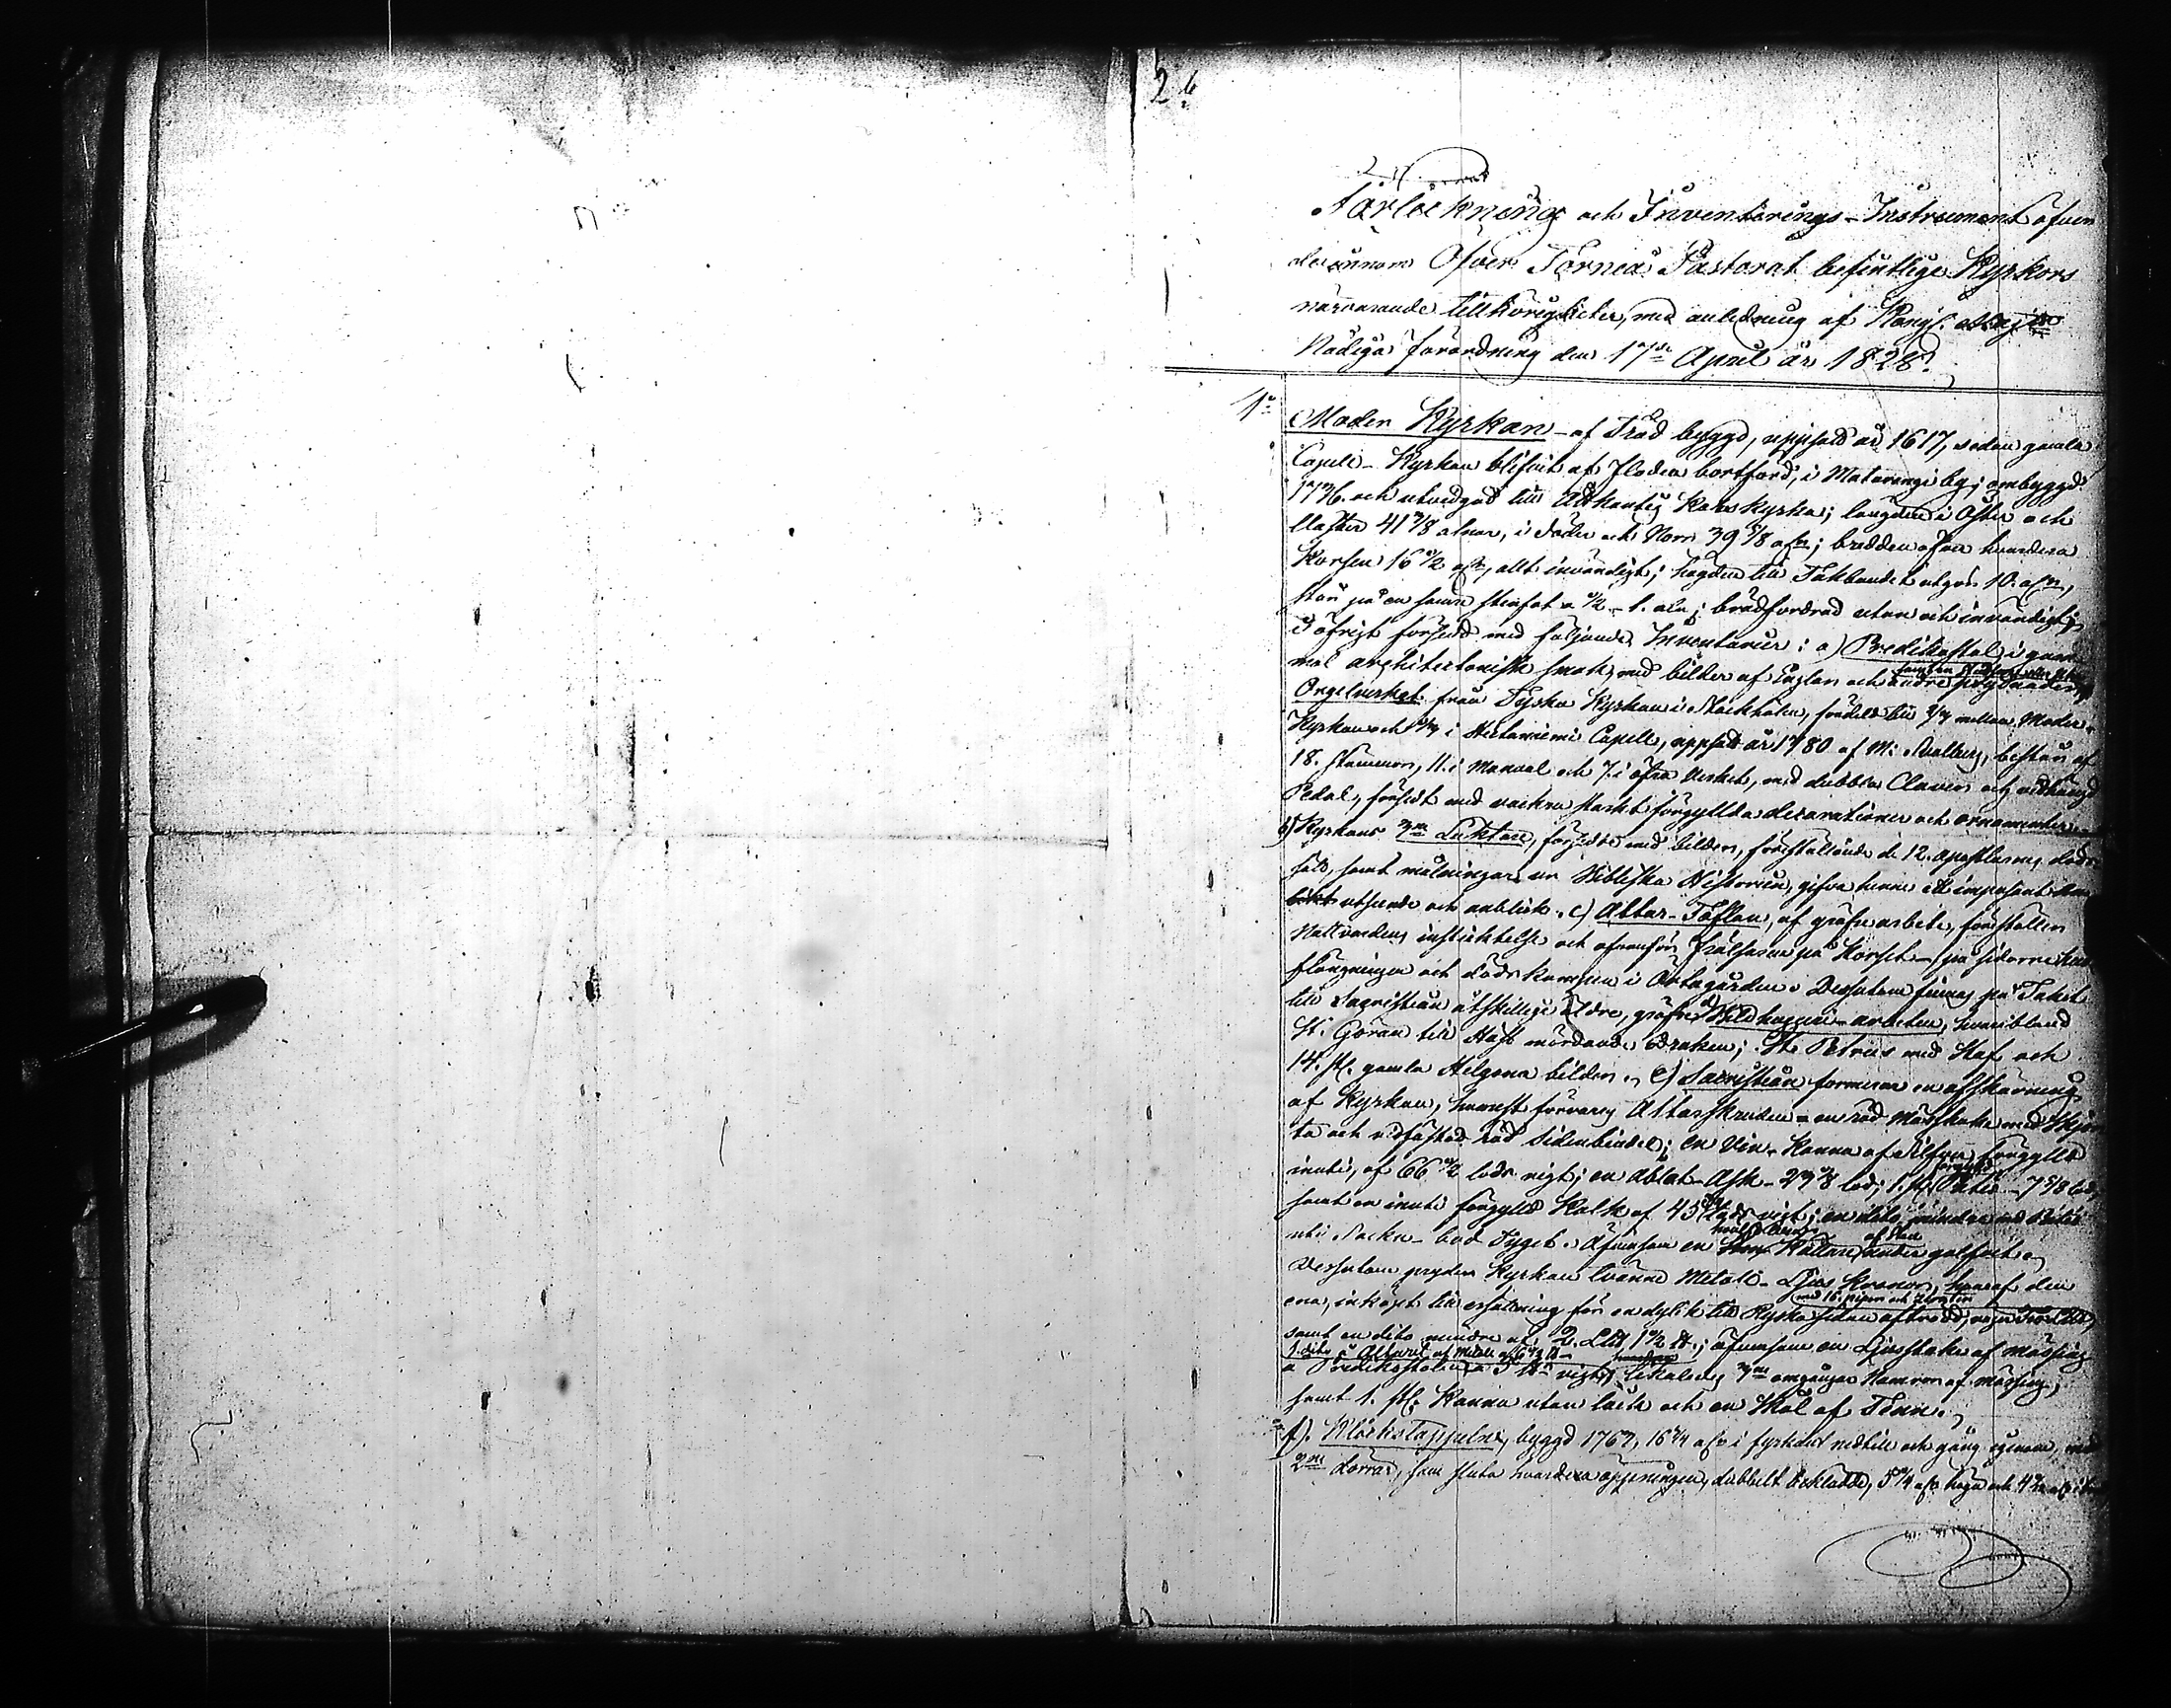 2
Förteckning och Inventerings-Instrument öfver
de innom Öfver Torneå Pastorat befintlige Kyrkors
närvarande tillhörigheter, med anledning af Kongl. Maj:ts
Nådiga förordning den 17de April år 1828.
1o
Moder Kyrkan - af Träd byggd, uppsatt år 1617, sedan gamla
Capell-Kyrkan blifvit af floden bortförd, i Matarengi by; ombyggd
1736. och utvidgad till Åttkantig Kors kyrka; längden i Öster och
Wäster 41 7/8 alnar, i Söder och Norr 39 5/8 aln; bredden öfver hvardera
Korsen 16 1/2 aln, allt invändigt; högden till Takbandet utgör 10. aln,
står på en jemn stenfot a 1/2 - 1. aln; brädfordrad utan och invändigt,
I öfrigt försedd med följande Inventarier: a) Predikostol i gam-
mal architectonisk smak, med bilder af Englar och andre prydnader,
Orgelverket från Tyska Kyrkan i Stockholm, fördelt till mellan Moder-
Kyrkan och i Hietaniemi Capell, uppsatt år 1780 af M: Swalberg, består af
18. Stämmor, 11. i Manual och 7. i öfra Verket, med dubbla Claver och vidhängd
Pedal, försedt med vackra starkt förgyllda decorationer och ornamenter
b) Kyrkans Lucktare, försedde med bilder, föreställande de 12. Apostlarne,
samt målningar ur Bibliska Historien, gifva henne ett imposant
utseende och anblick. c) Altar-Taflan, af gräfne arbete, föreställer
Nattvardens instiktelse och ofvanför Frälsaren på Korset - på sidorne
flängningen och dödskampen i Örtagården. Dessutom finnas på Taket
till Sacristian åtskillige äldre, gräfne Bildhuggeri-arbeten, hvaribland
St. Göran till Häst mördande Draken; St. Petrus med Staf och
14. st. gamla Helgona bilder. e) Sacristian formerar en afskärning
af Kyrkan, hvarest förvaras Altarskruden - en röd Mässhake med Skjor
ta och vidfästad röd Sidenbindel; en Vin-Kanna af Silfver, förgylld
inuti, af 66 1/2 lods vigt; en Ablat-Ask - 29 7/8 lod; 1. st. förgylld Patén - 7 5/8 lod,
samt en inuti förgylld Kalk af 45 lods vigt; en dito mindre med Patén
uti Socken-bud Tyget. Äfvensom en Källare af Sten under golfvet
Dessutom pryder Kyrkan tvänne Metall-Ljus Kronor, hvaraf den
med 16. pipor och
ena, inköpt till ersättning för en dylik till Ryska sidan afträdd,
samt en dito mindre af 2. L℔ 1 1/2 ℔.; äfvensom en Ljusstake af mässing
1. dito å Altaret af Metall
å Predikstolen a 5 ℔ vigt, likaledes omgångar af mässing,
samt 1. st. Kanna utan lock och en Skål af Tenn.
f). Klockstappeln, byggd 1767, 16 3/4 aln i fyrkant nedtill och gång igenom,
2ne dörrar, som sluta hvardera öppningen, dubbelt beklädde, 5 1/4 aln höga och